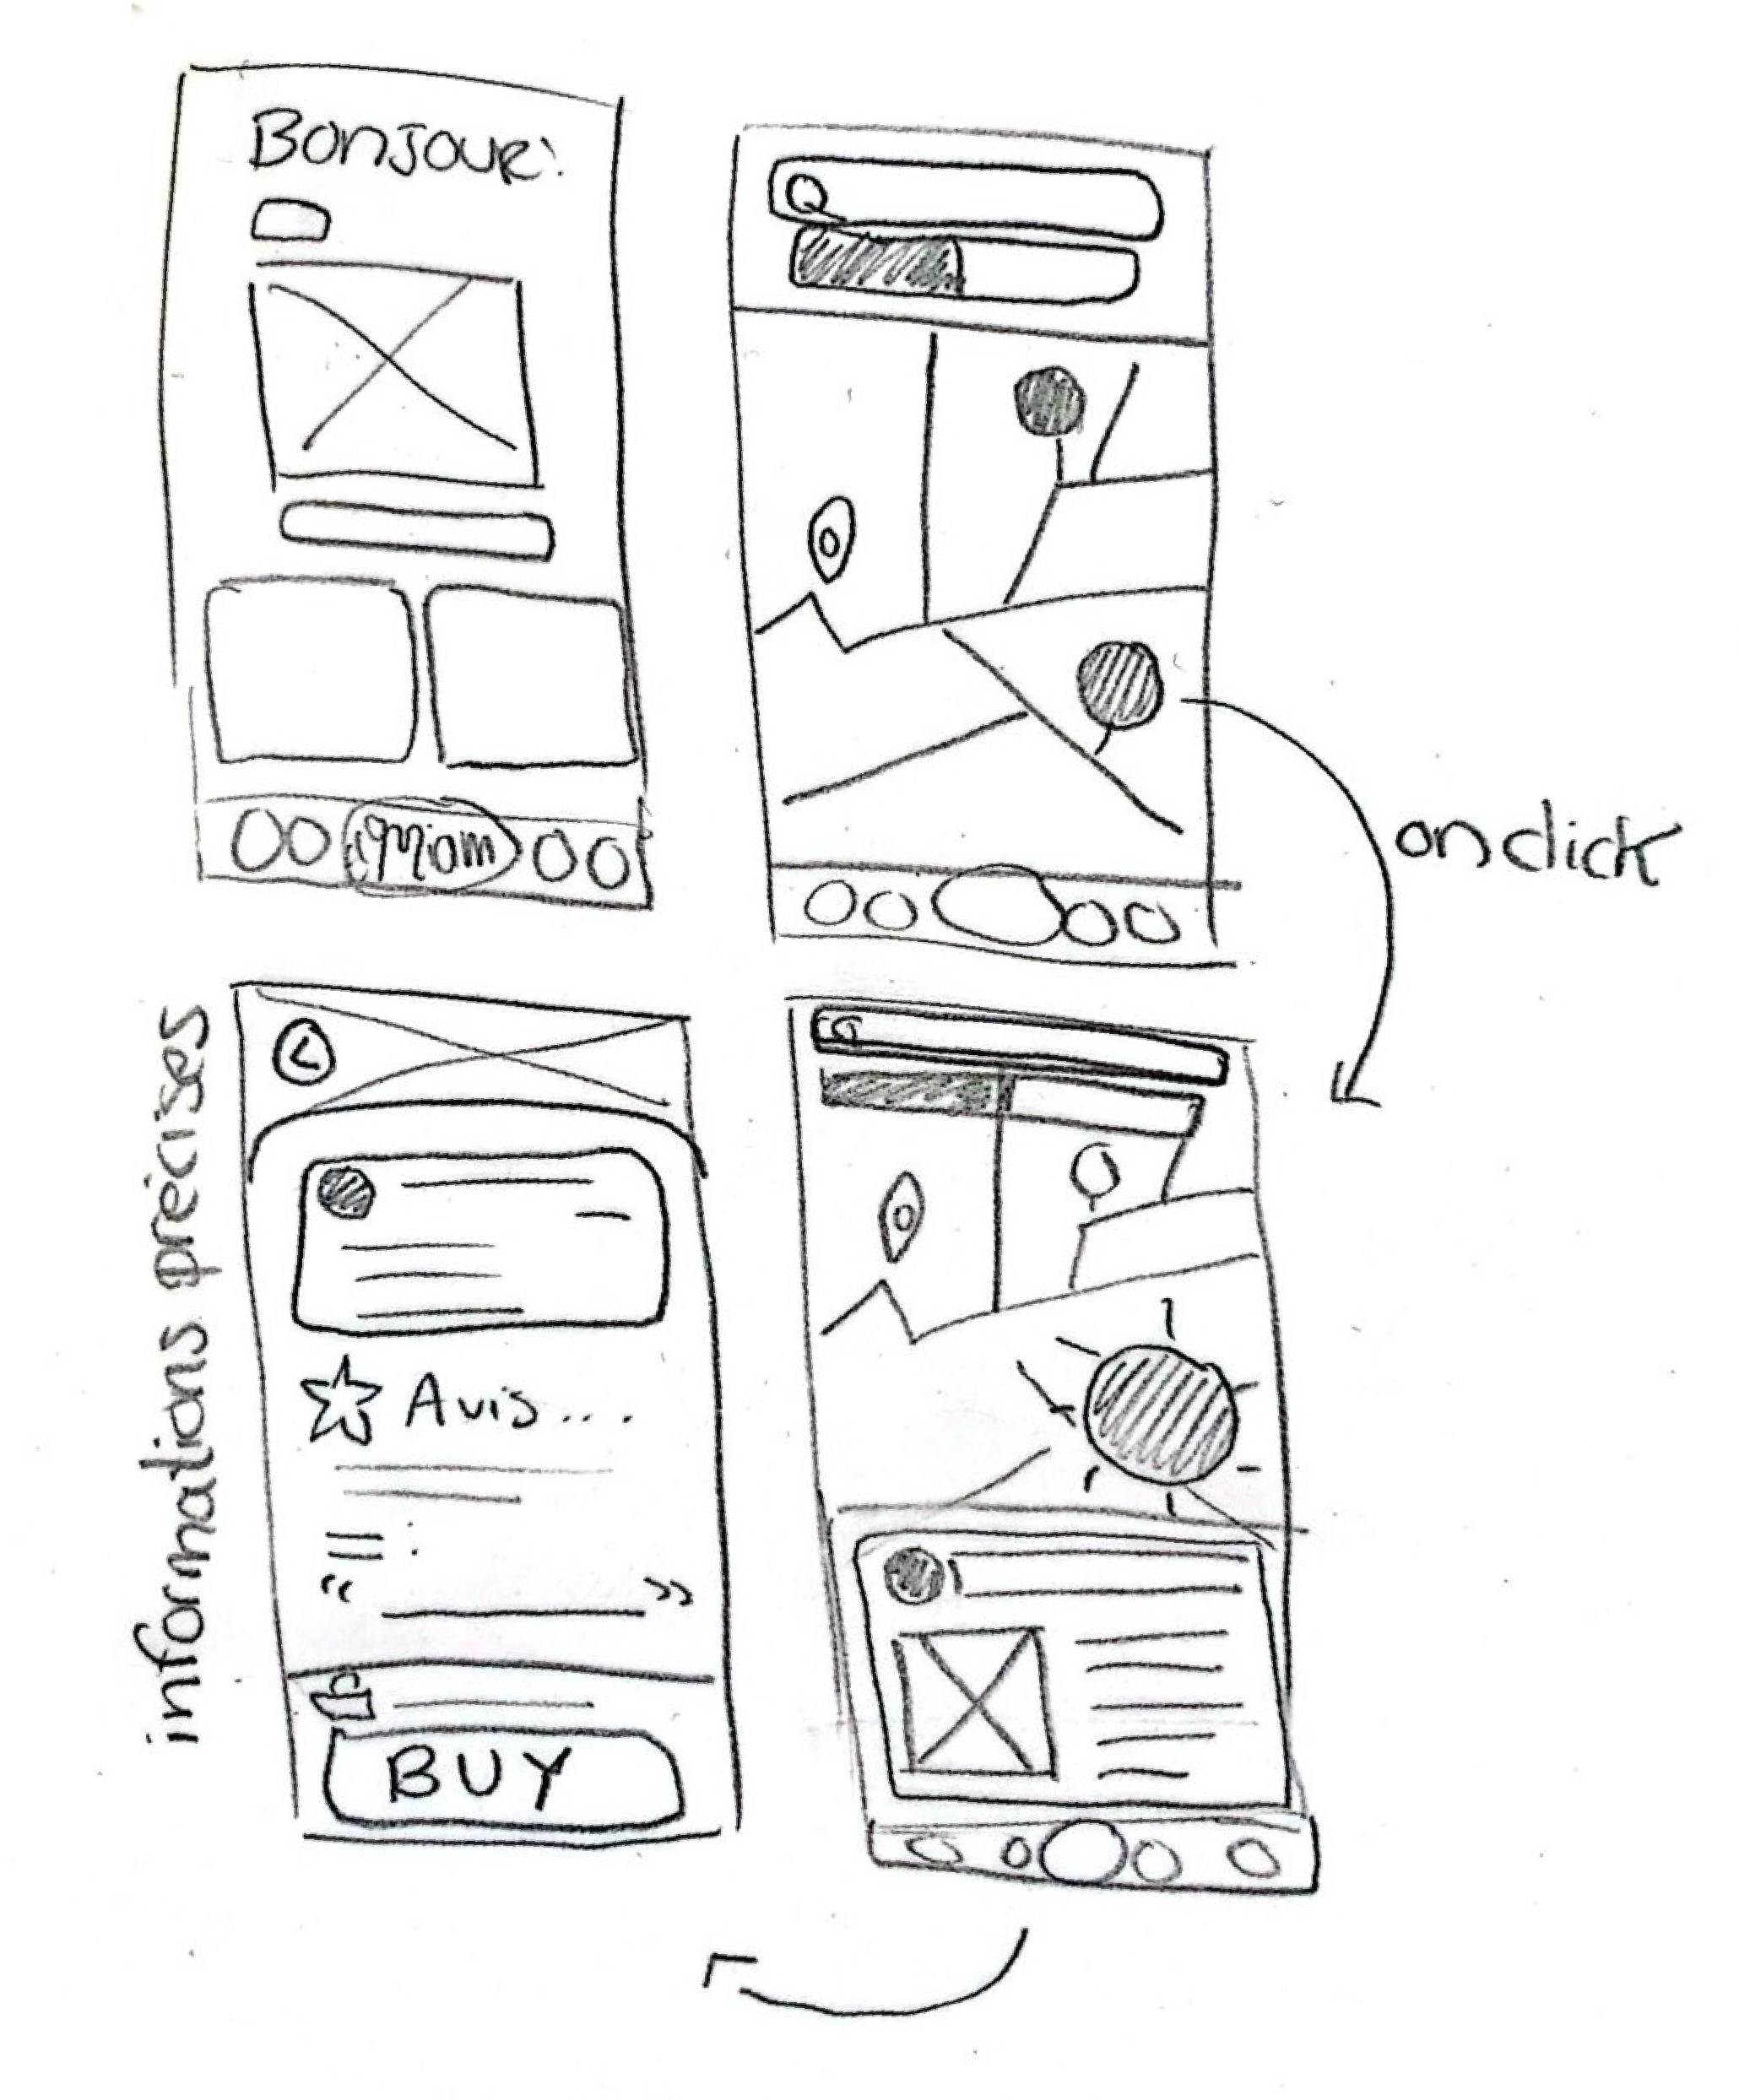 Bonjour:
Miam
on click
informations précises
Avis...
“ ”
BUY